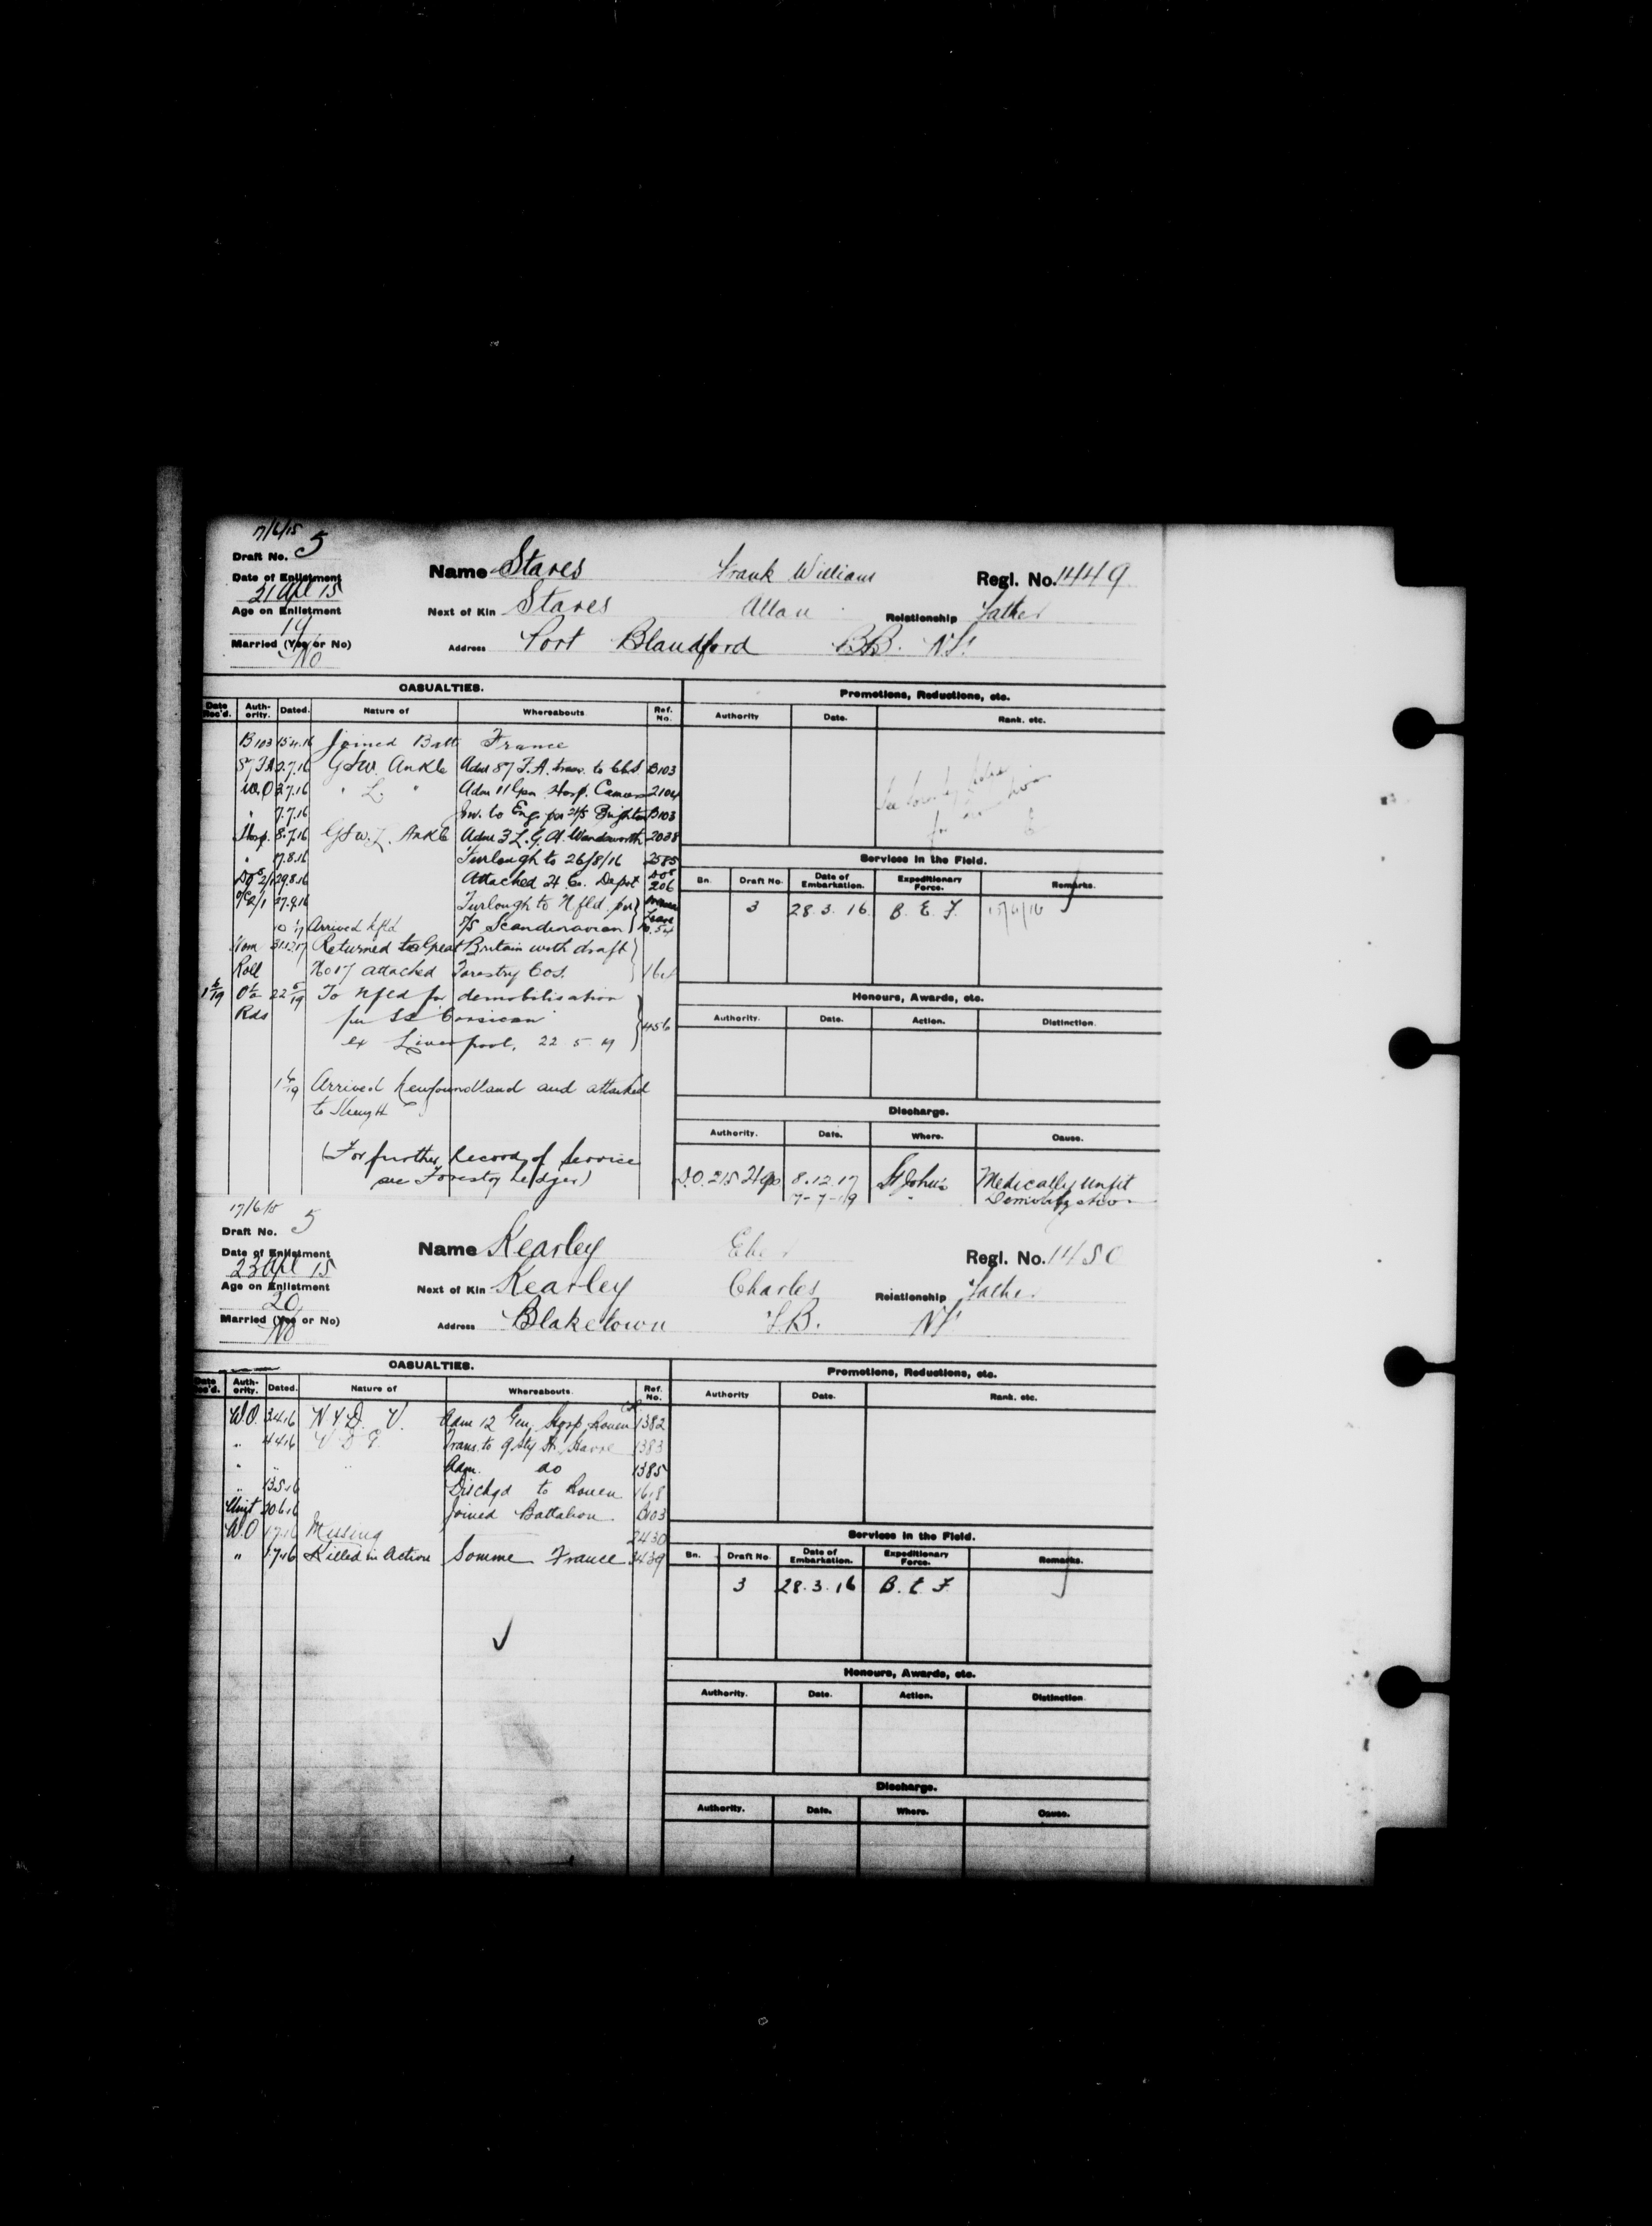 17/6/15
Draft No. 5
Date of Enlistment
21 Apl 15
Age on Enlistment
19
Married (Yes or No)
No
Name Stares Frank William Regl. No. 1449
Next of Kin Stares Allan Relationship Father
Address Port Blandford B.B. Nf.
CASUALTIES.
Date Rec'd. Auth-ority. Dated. Nature of Whereabouts Ref. No.
B103 15.4.16 Joined Batt France
87 FA 2.7.16 GSW. Ankle Adm 87 F.A. trans. to C.C.S. B103
W.O 2.7.16 " L. " Adm 11 Gen Hosp. Camiers 2104
" 7.7.16 Inv. to Eng. per H/S Brighton B103
Hosp. 8.7.16 GSW. L. Ankle Adm 3 L.G.H. Wandsworth 2038
" 17.8.16 Furlough to 26/8/16 2585
29.8.16 Attached H Co. Depot 206
2/1 27.9.16 Furlough to Nfld. per
Arrived Nfld S/S Scandinavian
Nom 31.12.17 Returned to Great Britain with draft
Roll No 17 attached Forestry Cos.
22 5/19 To Nfld for demobilisation
Rds per SS Corsican 456
ex Liverpool, 22.5.19
1 6/19 Arrived Newfoundland and attached
to Strength
(For further Record of Service
see Forestry Ledger)
Promotions, Reductions, etc.
Authority Date. Rank. etc.
Services in the Field.
Bn. Draft No. Date of Embarkation. Expeditionary Force. Remarks.
3 28.3.16. B.E.F.
Honours, Awards, etc.
Authority. Date. Action. Distinction.
Discharge.
Authority. Date. Where. Cause.
D.O. 215 8.12.17 St John's Medically Unfit
7-7-19 " Demobilization
17/6/15
Draft No. 5
Date of Enlistment
23 Apl 15
Age on Enlistment
20
Married (Yes or No)
No
Name Kearley Regl. No. 1450
Next of Kin Kearley Charles Relationship Father
Address Blaketown T.B. Nf
CASUALTIES.
Date Rec'd. Auth-ority. Dated. Nature of Whereabouts. Ref. No.
W.O. 3.4.16 N.Y.D. V. Adm 12 Gen. Hosp Rouen 1382
" 4.4.16 V D G. Trans. to 9 Sty H. Havre 1383
" " " Adm. do 1385
" 13.5.16 Dischgd to Rouen 1618
Unit 30.6.16 Joined Battalion. B103
W.O 1.7.16 Missing 2430
" 1.7.16 Killed in Action Somme France. 3439
Promotions, Reductions, etc.
Authority Date. Rank. etc.
Services in the Field.
Bn. Draft No. Date of Embarkation. Expeditionary Force. Remarks.
3 28.3.16 B.E.F.
Honours, Awards, etc.
Authority. Date. Action. Distinction.
Discharge.
Authority. Date. Where. Cause.